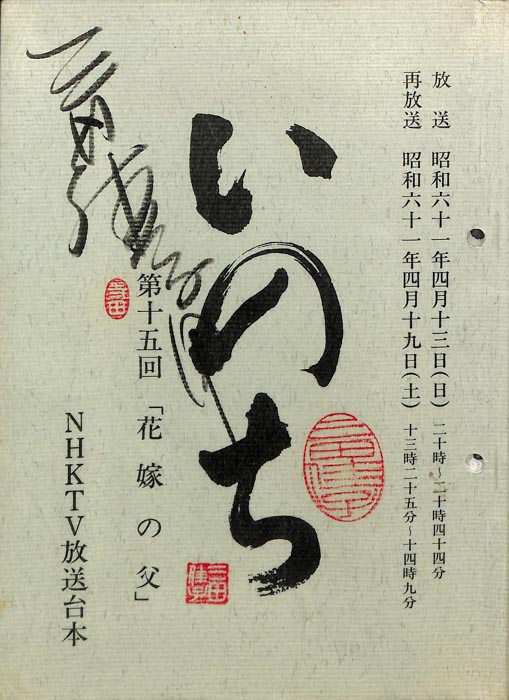 放送 昭和六十一年四月十三日(日) 二十時~二十時四十四分
再放送 昭和六十一年四月十九日(土) 十三時二十五分~十四時九分
いのち
第十五回「花嫁の父」
NHKTV放送台本